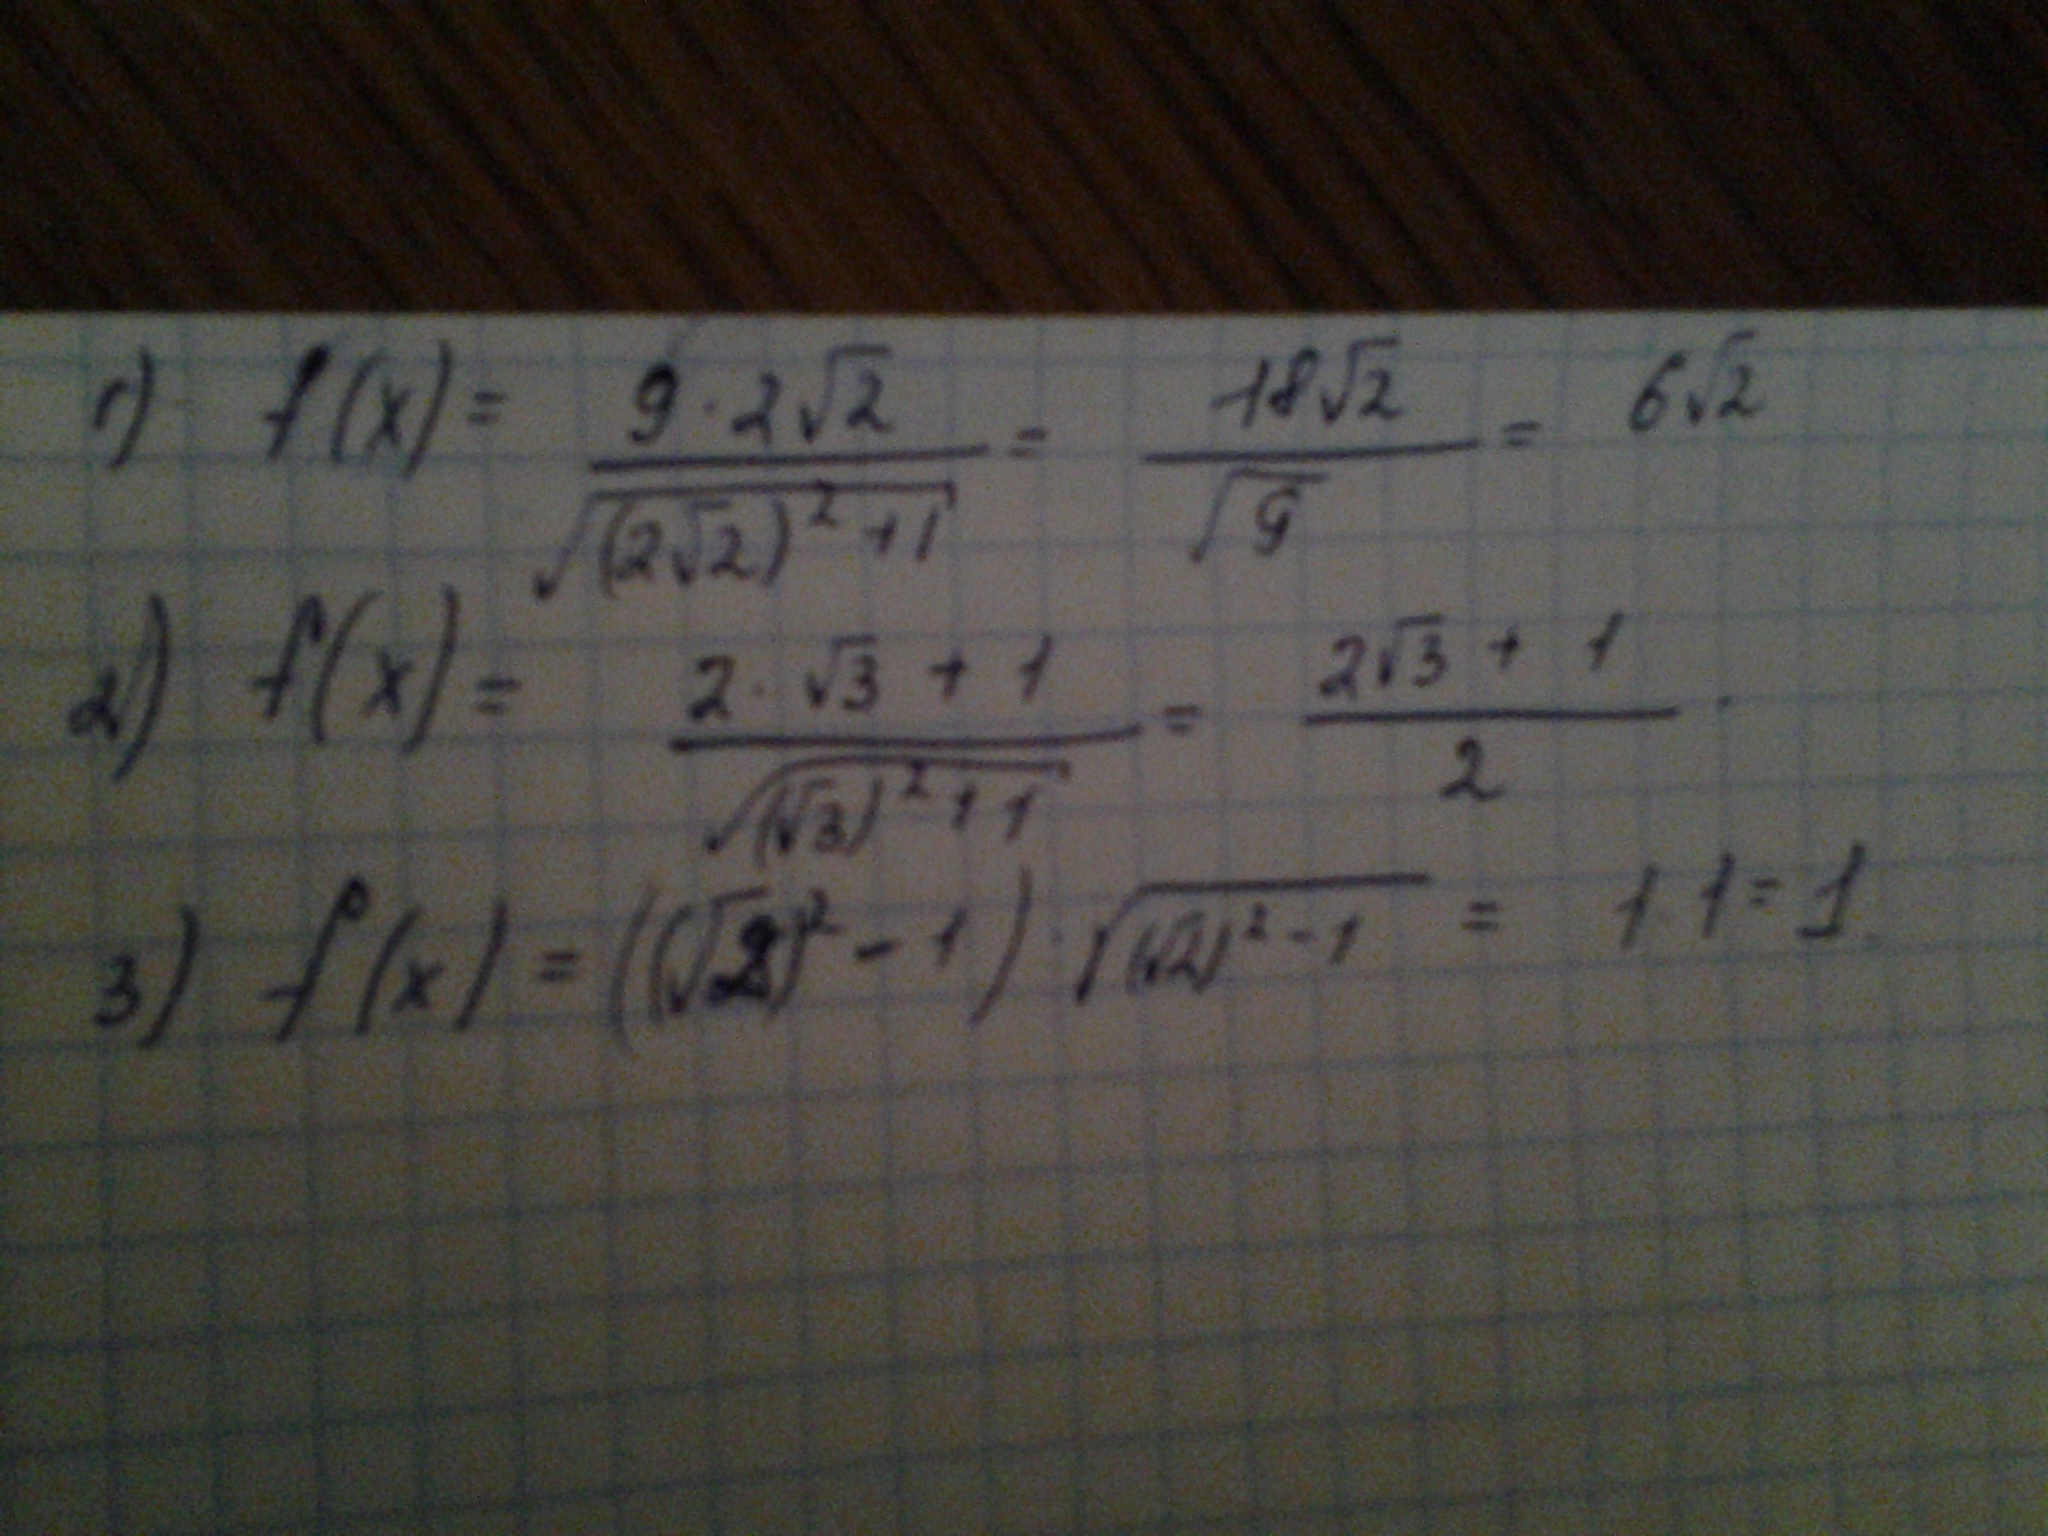 1) f(x) = \frac{9 \cdot 2\sqrt{2}}{\sqrt{(2\sqrt{2})^2 + 1}} = \frac{18\sqrt{2}}{\sqrt{9}} = 6\sqrt{2}
2) f(x) = \frac{2 \cdot \sqrt{3} + 1}{\sqrt{(\sqrt{3})^2 + 1}} = \frac{2\sqrt{3} + 1}{2}.
3) f(x) = ((\sqrt{2})^2 - 1) \cdot \sqrt{(\sqrt{2})^2 - 1} = 1 \cdot 1 = 1.